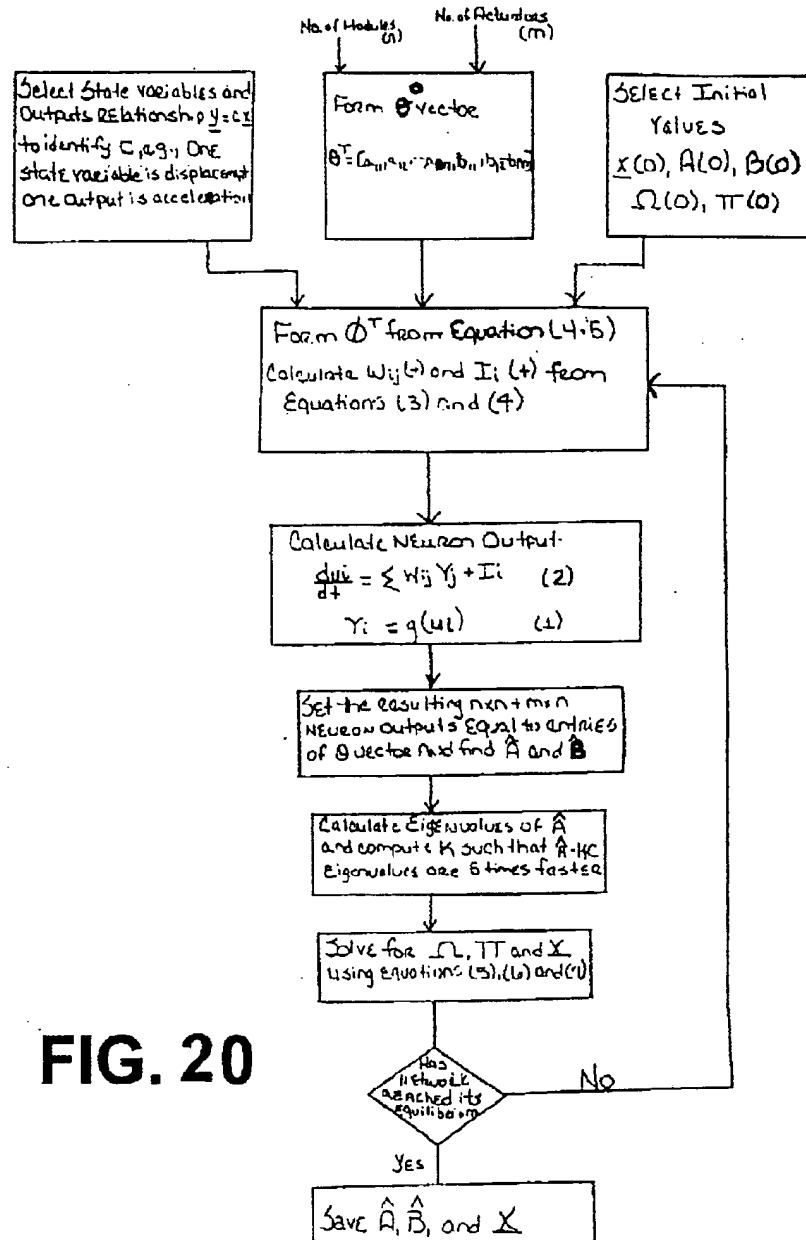 No. of Modules
(n)
No. of Actuators
(m)
Select State variables and
Outputs Relationship y=cx
to identify C, e.g., One
state variable is displacement
one output is acceleration
Form θ vector
SELECT Initial
Values
x(0), A(0), B(0)
Ω(0), π(0)
Form Φᵀ from Equation (4.5)
Calculate Wij(t) and Ii(t) from
Equations (3) and (4)
Calculate NEURON Output
dui/dt = Σ Wij Yj + Ii (2)
Yi = g(ui) (1)
Set the resulting nxn+mxn
NEURON Outputs Equal to entries
of θ vector and find Â and B̂
Calculate Eigenvalues of Â
and compute K such that Â-KC
Eigenvalues are 5 times faster
Solve for Ω, π and X
using equations (5), (6) and (7)
Has
network
reached its
equilibrium
No
YES
Save Â, B̂, and X
FIG. 20